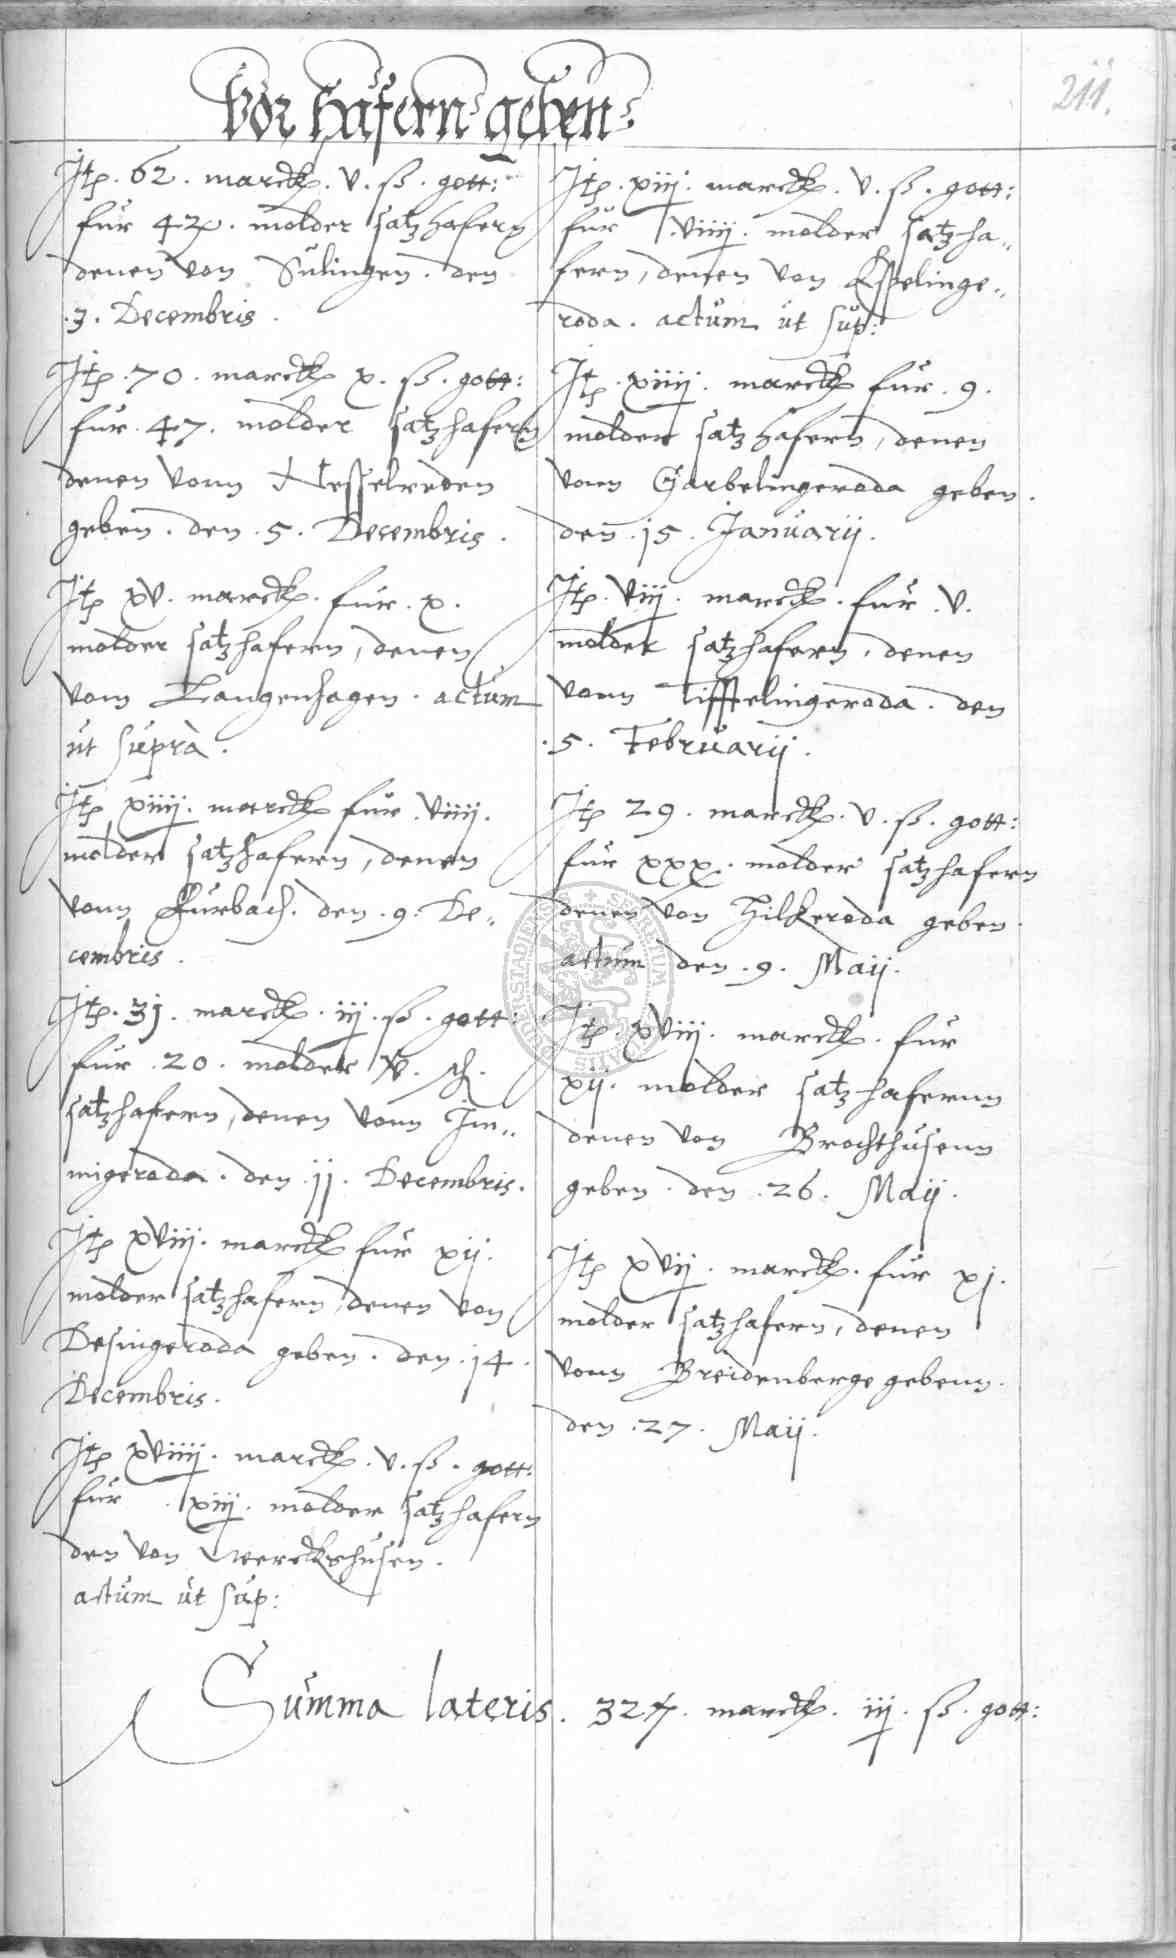 Vor Hafern geben
211.
Itē. 62. marck. v. ß. gott:
fur 42. molder satzhafern
denen von Sulingen. den
.3. Decembris.
Itē .70. marck x. ß. gott:
fur .47. molder satzhafern
denen vonn Nesselreden
geben. den .5. Decembris.
Itē xv. marck. fur .x.
molder satzhafern, denen
vom Langenhagen. actum
ut suprà.
Itē xiiij. marck fur .viiij.
molder satzhafern, denen
vonn Furbach. den .9. De„
cembris.
Itē. 3j. marck. iij. ß. gott:
fur .20. molder
satzhafern, denen vonn Im„
migeroda. den .jj. Decembris.
Itē xviij. marck fur xij.
molder satzhafern denen von
Desingeroda geben. den .j4.
Decembris.
Itē xviiij. marck .v. ß. gott:
fur .xiij. molder satzhafern
den von Werckshusen.
actum ut sup:
Itē. xiij. marck. v. ß. gott:
fur .viiij. molder satzha„
fern, denen von Espelinge„
roda. actum ut sup:
Itē .xiiij. marck fur .9.
molder satzhafern, denen
vonn Garbelingeroda geben.
den .j5. Januarij.
Itē. viij. marck. fur .v.
molder satzhafern, denen
vonn Tifftelingeroda. den
.5. Februarij.
Itē 29. marck. v. ß. gott:
fur xxx. molder satzhafern
denen von Hilkeroda geben.
actum den .9. Maij.
Itē. xviij. marck. fur
xij. molder satzhafernn
denen von Brochthusenn
geben. den .26. Maij.
Itē xvij. marck. fur xj.
molder satzhafern, denen
vonn Breidenberge gebenn.
den .27. Maij.
Summa lateris. 327. marck. iij. ß. gott: